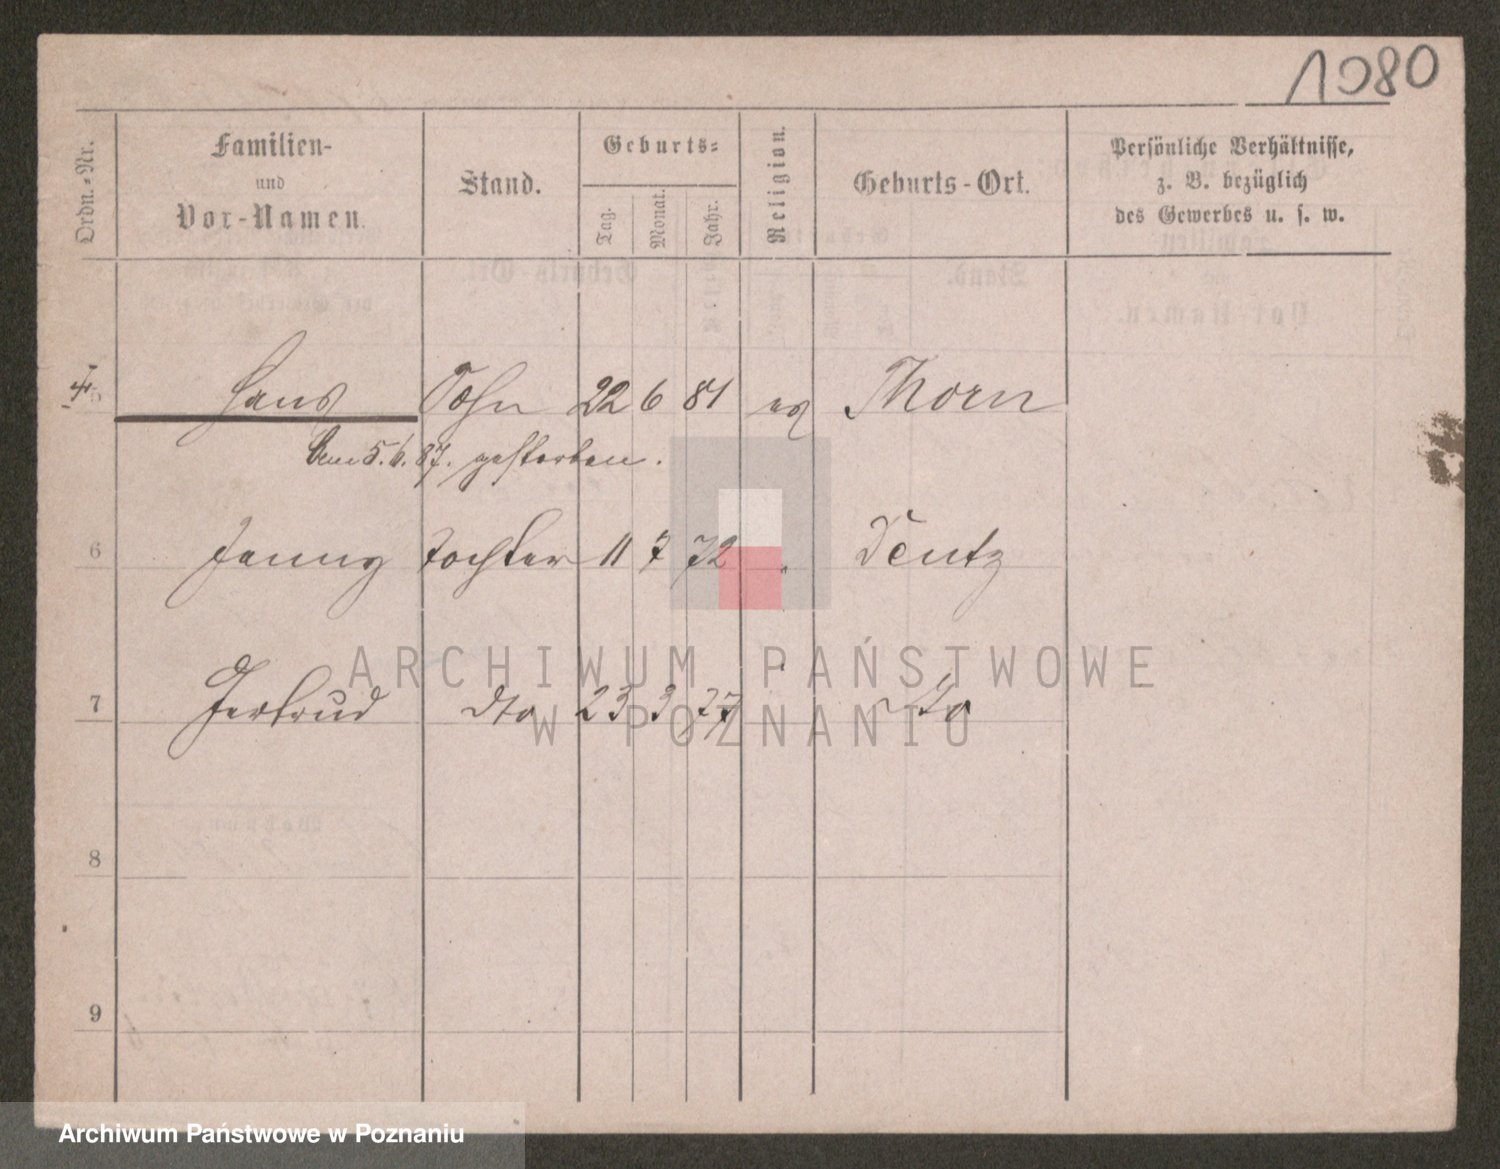 1080
Ordn.-Nr. Familien- und Vor-Namen. Stand. Geburts- Tag. Monat. Jahr. Religion. Geburts-Ort. Persönliche Verhältnisse, z. B. bezüglich des Gewerbes u. s. w.
5 Hans Sohn 22 6 81 ev Thorn
5. 6. 87. gestorben.
6 Jenny Tochter 11 7 72 " Deutz
7 Gertrud dto 23 3 77 dto
8
9
ARCHIWUM PAŃSTWOWE
W POZNANIU
Archiwum Państwowe w Poznaniu